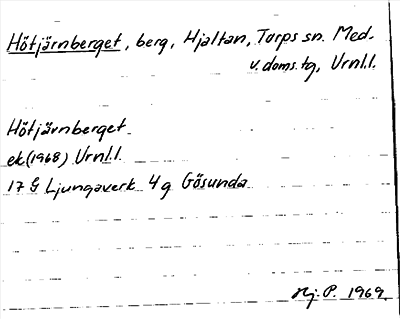 Hötjärnberget, berg, Hjältan, Torps sn. Med.
v. doms. tg, Vrnl.l.
Hötjärnberget
ek(1968) Vrnl.l.
17 G Ljungaverk 4 g Gösunda
Hj. P. 1969.